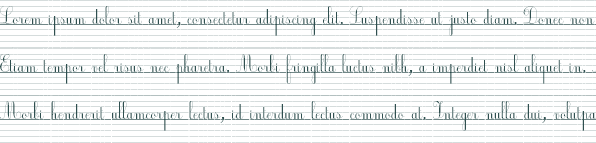 Lorem ipsum dolor sit amet, consectetur adipiscing elit. Suspendisse ut justo diam. Donec non
Etiam tempor vel risus nec pharetra. Morbi fringilla luctus nibh, a imperdiet nisl aliquet in.
Morbi hendrerit ullamcorper lectus, id interdum lectus commodo at. Integer nulla dui, volutpa